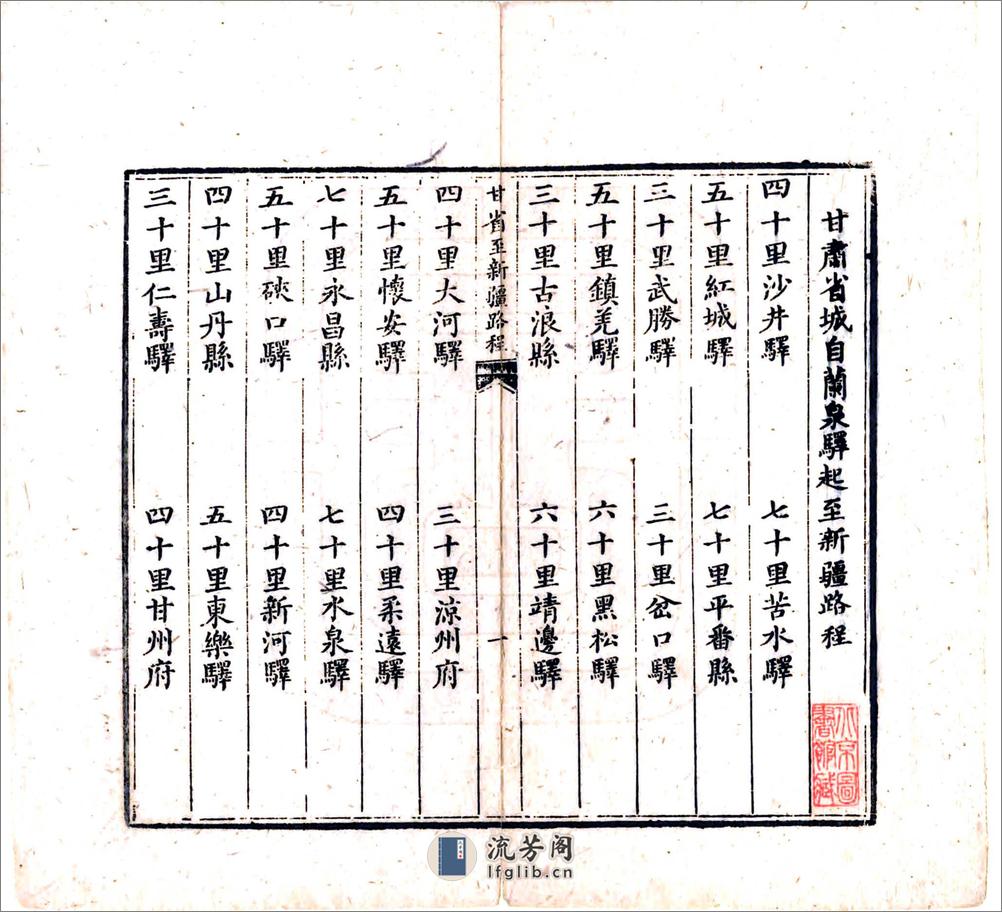 甘肅省城自蘭泉驛起至新疆路程
四十里沙井驛 七十里苦水驛
五十里紅城驛 七十里平番縣
三十里武勝驛 三十里岔口驛
五十里鎮羌驛 六十里黑松驛
三十里古浪縣 六十里靖邊驛
甘省至新疆路程 一
四十里大河驛 三十里涼州府
五十里懷安驛 四十里柔遠驛
七十里永昌縣 七十里水泉驛
五十里硤口驛 四十里新河驛
四十里山丹縣 五十里東樂驛
三十里仁壽驛 四十里甘州府
北京圖書館藏
流芳阁
lfglib.cn